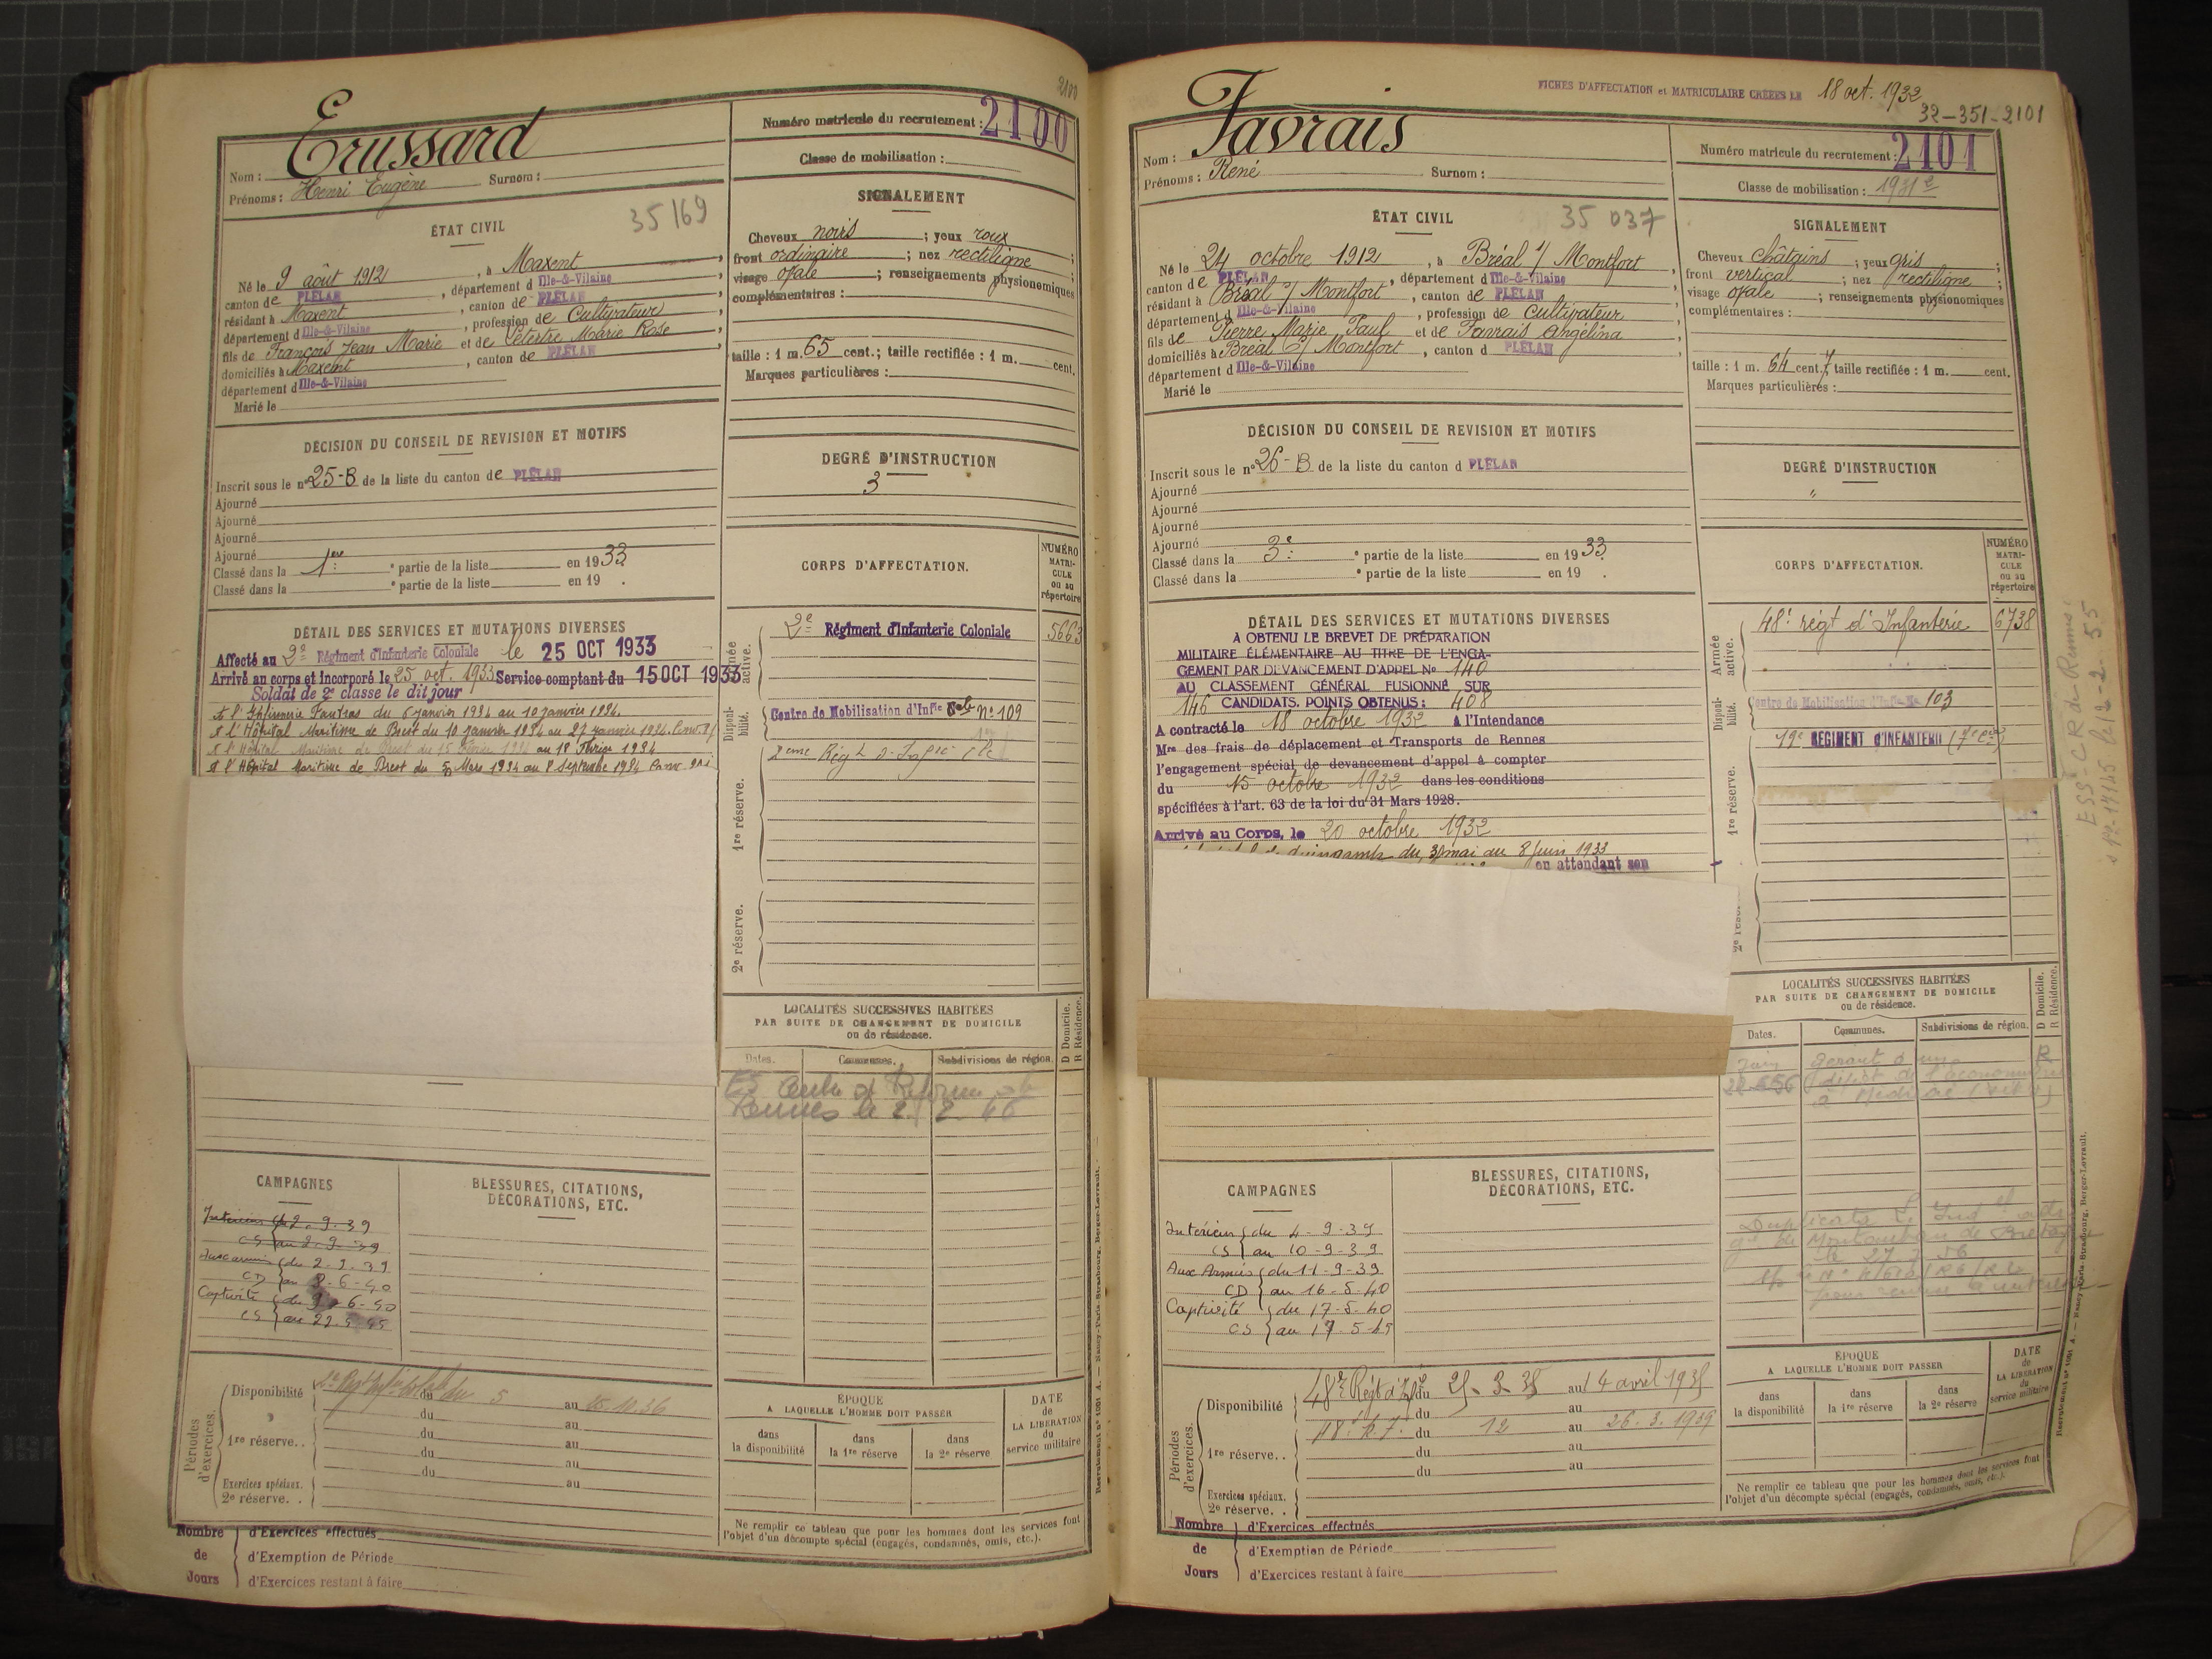 2100
Erussard
Nom :
Prénoms : Henri Eugène Surnom :
Numéro matricule du recrutement : 2100
Classe de mobilisation :
ÉTAT CIVIL
35169
Né le 9 août 1912, à Maxent,
canton de PLÉLAN, département d Ille-&-Vilaine,
résidant à Maxent, canton de PLÉLAN,
département d Ille-&-Vilaine, profession de Cultivateur,
fils de François Jean Marie et de Marie Rose,
domiciliés à Maxent, canton de PLÉLAN,
département d Ille-&-Vilaine
Marié le
SIGNALEMENT
Cheveux noirs ; yeux roux ;
front ordinaire ; nez rectiligne ;
visage ovale ; renseignements physionomiques
complémentaires :
taille : 1 m. 65 cent.; taille rectifiée : 1 m. cent.
Marques particulières :
DÉCISION DU CONSEIL DE REVISION ET MOTIFS
Inscrit sous le n° 25-B de la liste du canton de PLÉLAN
Ajourné
Ajourné
Ajourné
Ajourné
Classé dans la 1ère partie de la liste en 1933
Classé dans la e partie de la liste en 19 .
DEGRÉ D'INSTRUCTION
3
DÉTAIL DES SERVICES ET MUTATIONS DIVERSES
Affecté au 2e Régiment d'Infanterie Coloniale le 25 OCT 1933
Arrivé au corps et incorporé le 25 oct. 1933 Service comptant du 15 OCT 1933
Soldat de 2e classe le dit jour
A l'Infirmerie Fautras du 6 janvier 1934 au 10 janvier 1934.
A l'Hôpital Maritime de Brest du 10 janvier 1934 au 27 janvier 1934.
A l'Hôpital Maritime de Brest du 15 Février 1934 au 18 Février 1934
A l'Hôpital Maritime de Brest du 5 Mars 1934 au 8 Septembre 1934
CORPS D'AFFECTATION.
NUMÉRO MATRICULE ou au répertoire
Armée active.
2e Régiment d'Infanterie Coloniale 5663
Disponibilité.
Centre de Mobilisation d'Infie Cole n° 109
1re réserve.
2eme Régt
2e réserve.
LOCALITÉS SUCCESSIVES HABITÉES
PAR SUITE DE CHANGEMENT DE DOMICILE
ou de résidence.
Dates. Communes. Subdivisions de région. D Domicile. R Résidence.
Centre de Réforme de
Rennes le
CAMPAGNES
Intérieur du 2-9-39
CS au 2-9-39
Aux armées du 2-9-39
CD au 8-6-40
Captivité du 9-6-40
CS au 22-5-45
BLESSURES, CITATIONS,
DÉCORATIONS, ETC.
Périodes d'exercices.
Disponibilité du 5 au 15.10.36
du au
1re réserve. . du au
du au
du au
Exercices spéciaux.
2e réserve. .
ÉPOQUE
A LAQUELLE L'HOMME DOIT PASSER
dans la disponibilité
dans la 1re réserve
dans la 2e réserve
DATE de LA LIBÉRATION du service militaire
Ne remplir ce tableau que pour les hommes dont les services font
l'objet d'un décompte spécial (engagés, condamnés, omis, etc.).
Nombre de Jours
d'Exercices effectués
d'Exemption de Période
d'Exercices restant à faire
FICHES D'AFFECTATION et MATRICULAIRE CRÉÉES LE 18 oct. 1932
32-351-2101
Favrais
Nom :
Prénoms : René Surnom :
Numéro matricule du recrutement : 2101
Classe de mobilisation : 1931 2
ÉTAT CIVIL
35 037
Né le 24 octobre 1912, à Bréal s/ Montfort,
canton de PLÉLAN, département d Ille-&-Vilaine
résidant à Bréal s/ Montfort, canton de PLÉLAN
département d Ille-&-Vilaine, profession de Cultivateur
fils de Pierre Marie Paul et de Favrais Angélina
domiciliés à Bréal s/ Montfort, canton d PLÉLAN
département d Ille-&-Vilaine
Marié le
SIGNALEMENT
Cheveux châtains ; yeux gris ;
front vertical ; nez rectiligne ;
visage ovale ; renseignements physionomiques
complémentaires :
taille : 1 m. 64 cent. 7; taille rectifiée : 1 m. cent.
Marques particulières :
DÉCISION DU CONSEIL DE REVISION ET MOTIFS
Inscrit sous le n° 26-B de la liste du canton d PLÉLAN
Ajourné
Ajourné
Ajourné
Ajourné
Classé dans la 3e partie de la liste en 1933.
Classé dans la e partie de la liste en 19 .
DEGRÉ D'INSTRUCTION
"
DÉTAIL DES SERVICES ET MUTATIONS DIVERSES
A OBTENU LE BREVET DE PRÉPARATION
MILITAIRE ÉLÉMENTAIRE AU TITRE DE L'ENGA-
GEMENT PAR DEVANCEMENT D'APPEL No 140
AU CLASSEMENT GÉNÉRAL FUSIONNÉ SUR
146 CANDIDATS. POINTS OBTENUS : 408
A contracté le 18 octobre 1932 à l'Intendance
Mre des frais de déplacement et Transports de Rennes
l'engagement spécial de devancement d'appel à compter
du 15 octobre 1932 dans les conditions
spécifiées à l'art. 63 de la loi du 31 Mars 1928.
Arrivé au Corps, le 20 octobre 1932
du 31 mai au 8 Juin 1933
en attendant son
CORPS D'AFFECTATION.
NUMÉRO MATRICULE ou au répertoire
Armée active.
48e régt d'Infanterie 6738
Disponibilité.
Centre de Mobilisation d'Infie No 103
1re réserve.
19e RÉGIMENT d'INFANTERIE
ESS-CR de Rennes
LOCALITÉS SUCCESSIVES HABITÉES
PAR SUITE DE CHANGEMENT DE DOMICILE
ou de résidence.
Dates. Communes. Subdivisions de région. D Domicile. R Résidence.
Gérant d'un R
Duplicata
de Montauban de Bretagne
CAMPAGNES
Intérieur du 4-9-39
CS au 10-9-39
Aux Armées du 11-9-39
CD au 16-5-40
Captivité du 17-5-40
CS au 17-5-45
BLESSURES, CITATIONS,
DÉCORATIONS, ETC.
Périodes d'exercices.
Disponibilité 48e Régt d'Infie du 25-3-35 au 14 avril 1935
du au
1re réserve. . du 12 au 26.3.1939
du au
du au
Exercices spéciaux.
2e réserve. .
ÉPOQUE
A LAQUELLE L'HOMME DOIT PASSER
dans la disponibilité
dans la 1re réserve
dans la 2e réserve
DATE de LA LIBÉRATION du service militaire
Ne remplir ce tableau que pour les hommes dont les services font
l'objet d'un décompte spécial (engagés, condamnés, omis, etc.).
Nombre de Jours
d'Exercices effectués
d'Exemption de Période
d'Exercices restant à faire